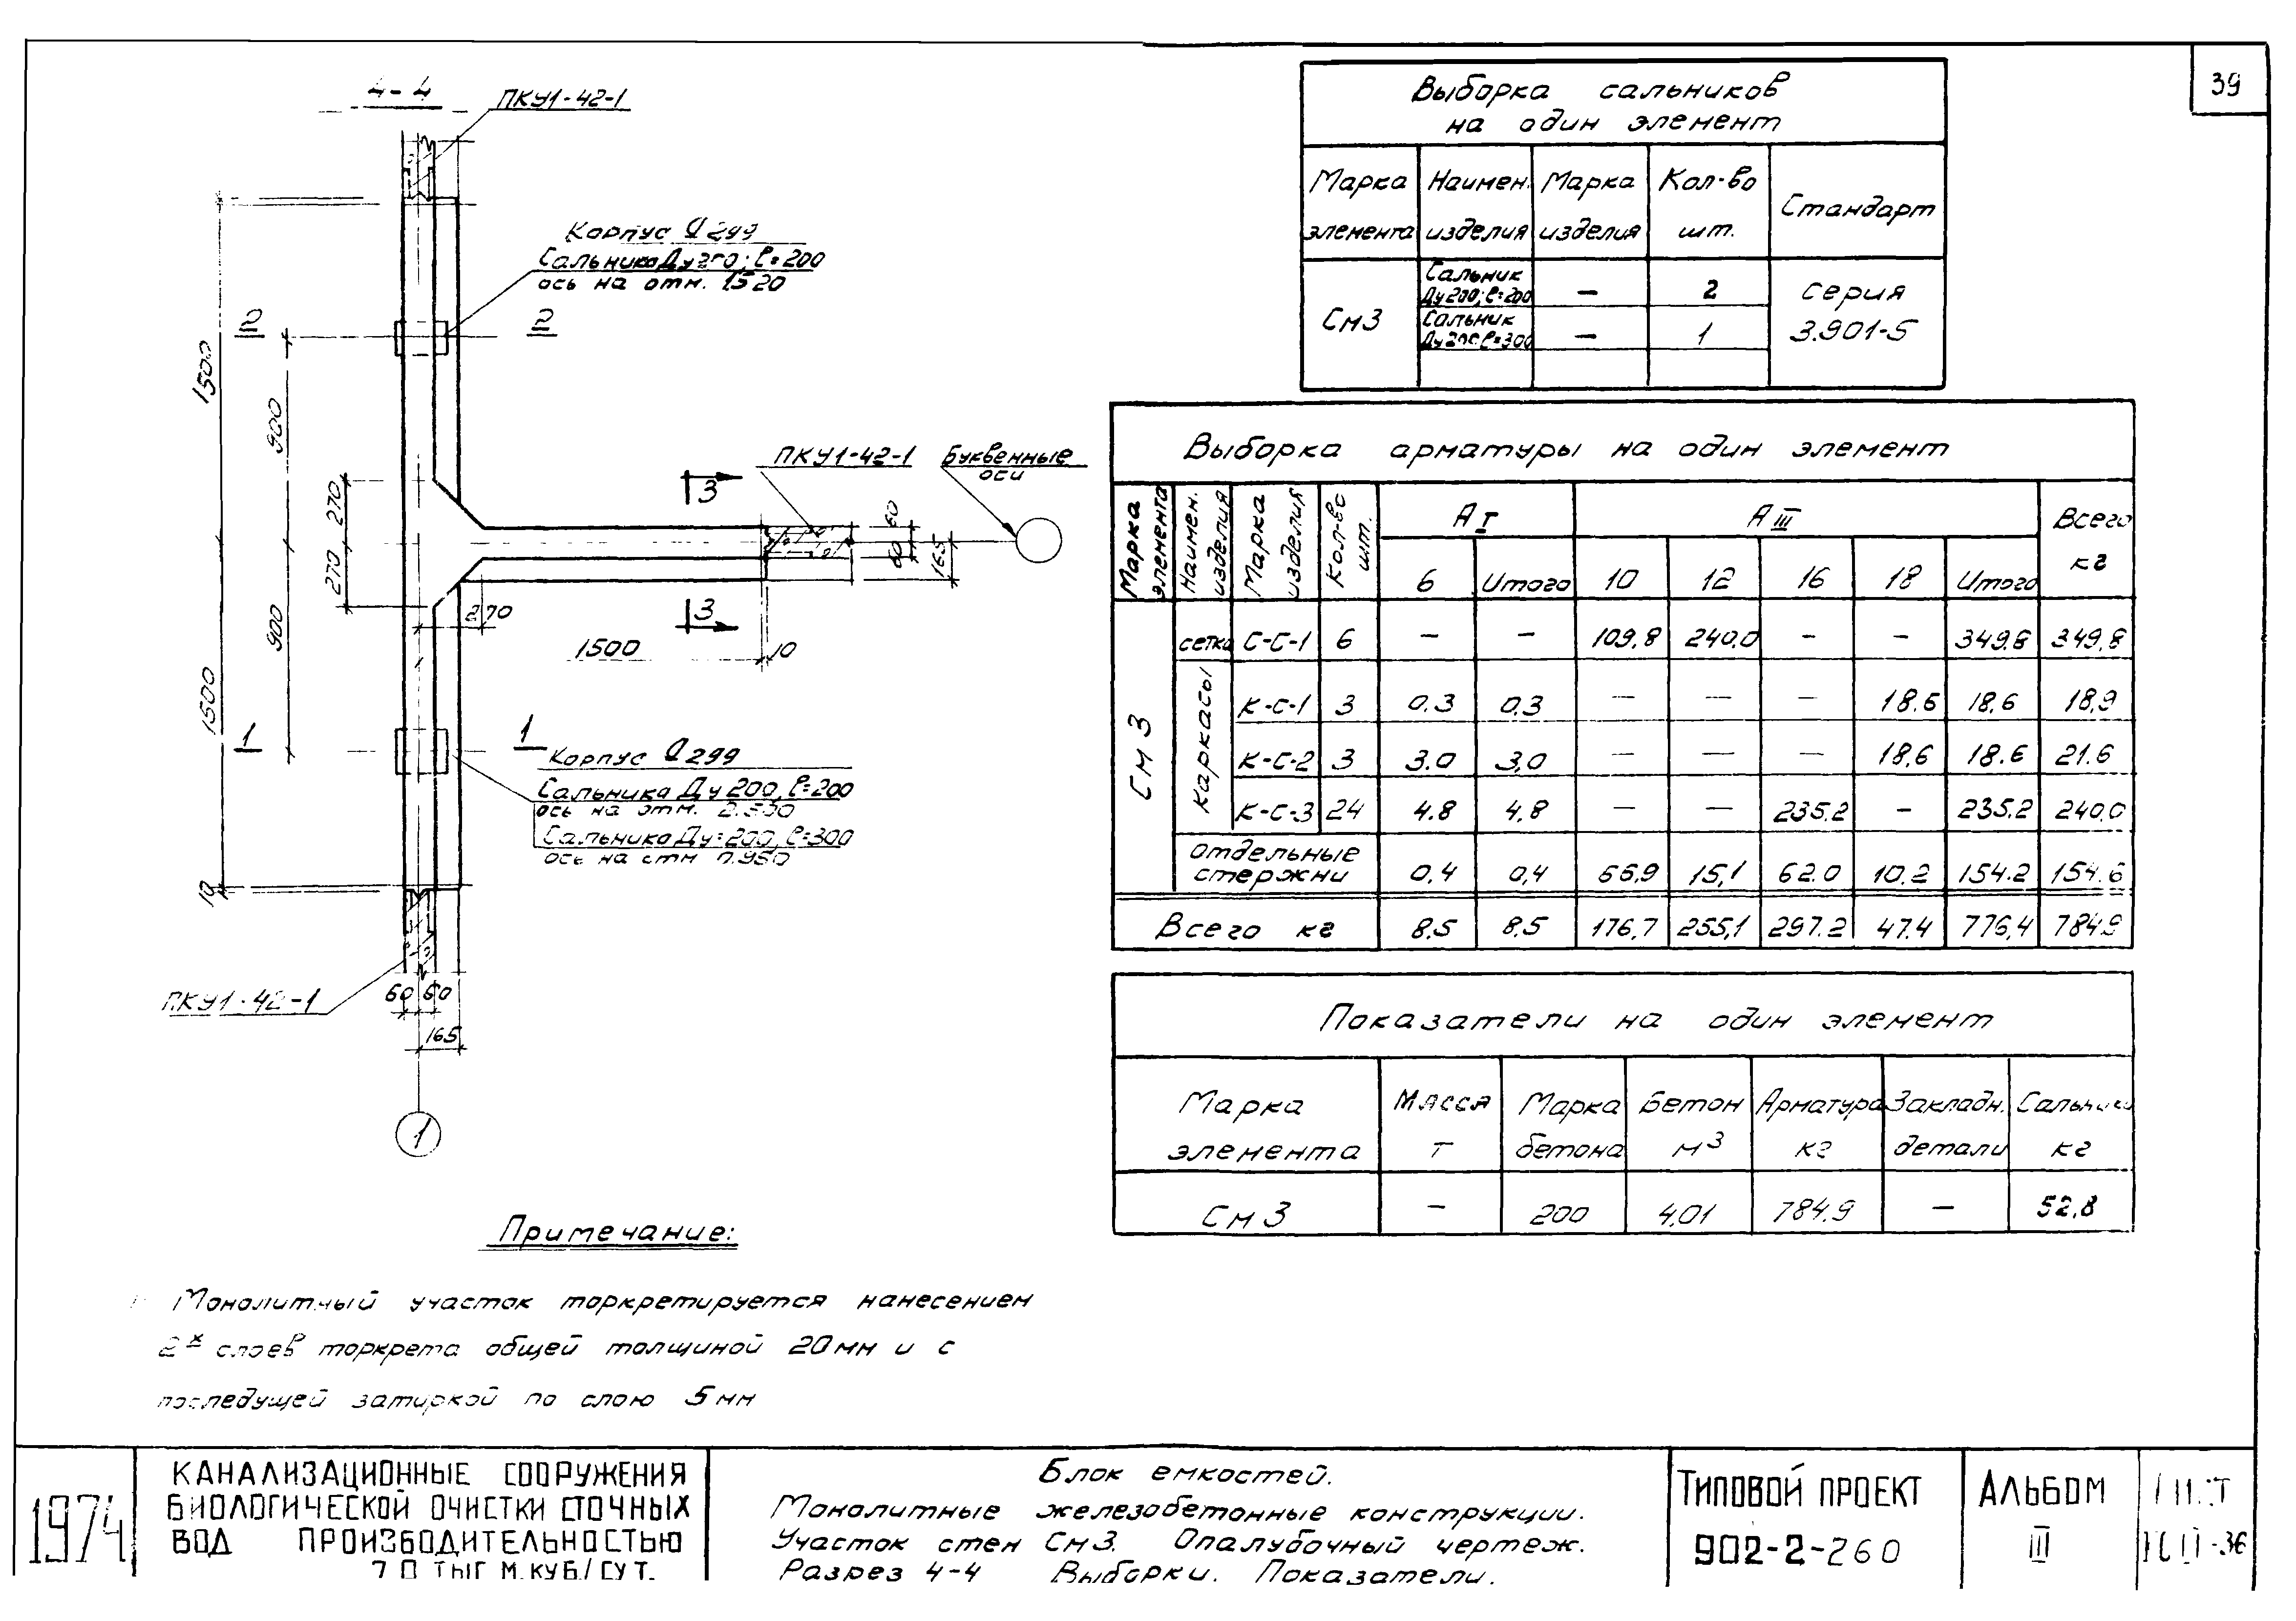 39
4-4
ПКУ1-42-1
Корпус d 299
ось на отм. 1520
2 2
1500
900
270
270
900
1500
10
ПКУ1-42-1
Буквенные
оси
3
3
60
60
165
270
1500
10
1 1
Корпус d 299
Сальника Ду 200, ℓ=200
Сальника Ду=200, ℓ=300
ПКУ1-42-1
60 60
165
1
Выборка сальников
на один элемент
Марка элемента
Наимен. изделия
Марка изделия
Кол-во шт.
Стандарт
См3
Сальник Ду 200; ℓ=200
—
2
серия 3.901-5
Сальник Ду 200 ℓ=300
—
1
Выборка арматуры на один элемент
Марка элемента
Наимен. изделия
Марка изделия
Кол-во шт.
А I
А III
Всего кг
6 Итого 10 12 16 18 Итого
См3
сетка С-С-1 6 — — 109,8 240,0 — — 349,8 349,8
Каркасы
К-С-1 3 0.3 0,3 — — — 18.6 18,6 18,9
К-С-2 3 3.0 3,0 — — — 18,6 18.6 21.6
К-С-3 24 4.8 4,8 — — 235.2 — 235.2 240,0
отдельные
стержни 0,4 0,4 66,9 15,1 62.0 10.2 154.2 154.6
Всего кг 8,5 8,5 176,7 255,1 297.2 47.4 776,4 784.9
Показатели на один элемент
Марка элемента
Масса т
Марка бетона
Бетон м3
Арматура кг
Закладн. детали
Сальники кг
См3 — 200 4,01 784.9 — 52,8
Примечание:
Монолитный участок торкретируется нанесением
2х слоев торкрета общей толщиной 20мм и с
последущей затиркой по слою 5мм
1974
КАНАЛИЗАЦИОННЫЕ СООРУЖЕНИЯ
БИОЛОГИЧЕСКОЙ ОЧИСТКИ СТОЧНЫХ
ВОД ПРОИЗВОДИТЕЛЬНОСТЬЮ
М.КУБ./СУТ.
Блок емкостей.
Монолитные железобетонные конструкции.
Участок стен См3. Опалубочный чертеж.
Разрез 4-4 Выборки. Показатели.
ТИПОВОЙ ПРОЕКТ
902-2-260
АЛЬБОМ
III